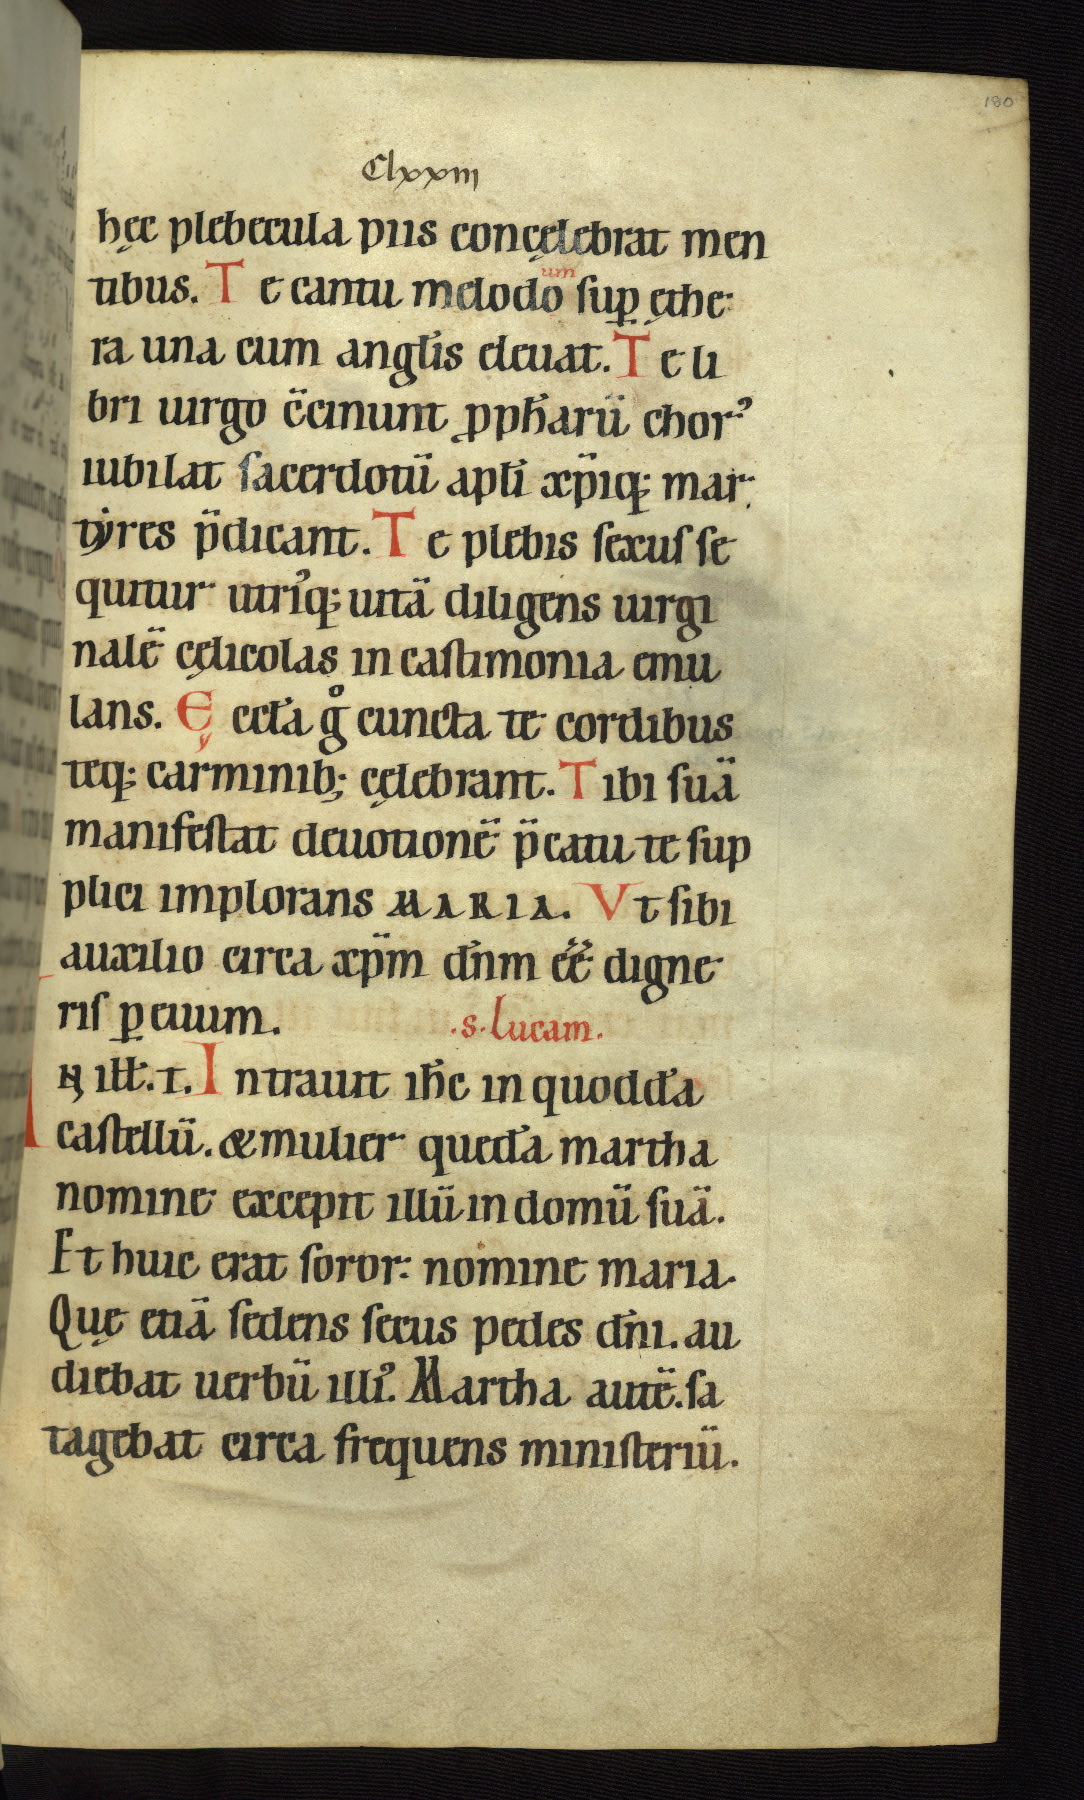 180
Clxxiii
hęc plebecula piis concęlebrat men
tibus. Te cantu melodo um sup̲ ęthe
ra una cum angl̄is eleuat. Te li
bri uirgo c̄cinunt ꝓph̄arū chorꝰ
iubilat sacerdotū apl̄i xp̄iq; mar
tẏres p̄dicant. Te plebis sexus se
quitur utriꝰq; uitā diligens uirgi
nalē cęlicolas in castimonia emu
lans. Ęccl̄a gͦ cuncta te cordibus
teq; carminib; cęlebrant. Tibi suā
manifestat deuotionē p̄catu te sup
plici implorans MARIA. Vt sibi
auxilio circa xp̄m dn̄m ee̅ digne
ris ꝑ euum. .s. lucam.
N ill̄. t. Intrauit ih̄c in quodda
castellū. & mulier queda martha
nomine excepit illū in domū suā.
Et huic erat soror: nomine maria.
Quę etiā sedens secus pedes dn̄i. au
diebat uerbū illiꝰ. Martha autē. sa
tagebat circa frequens ministeriū.